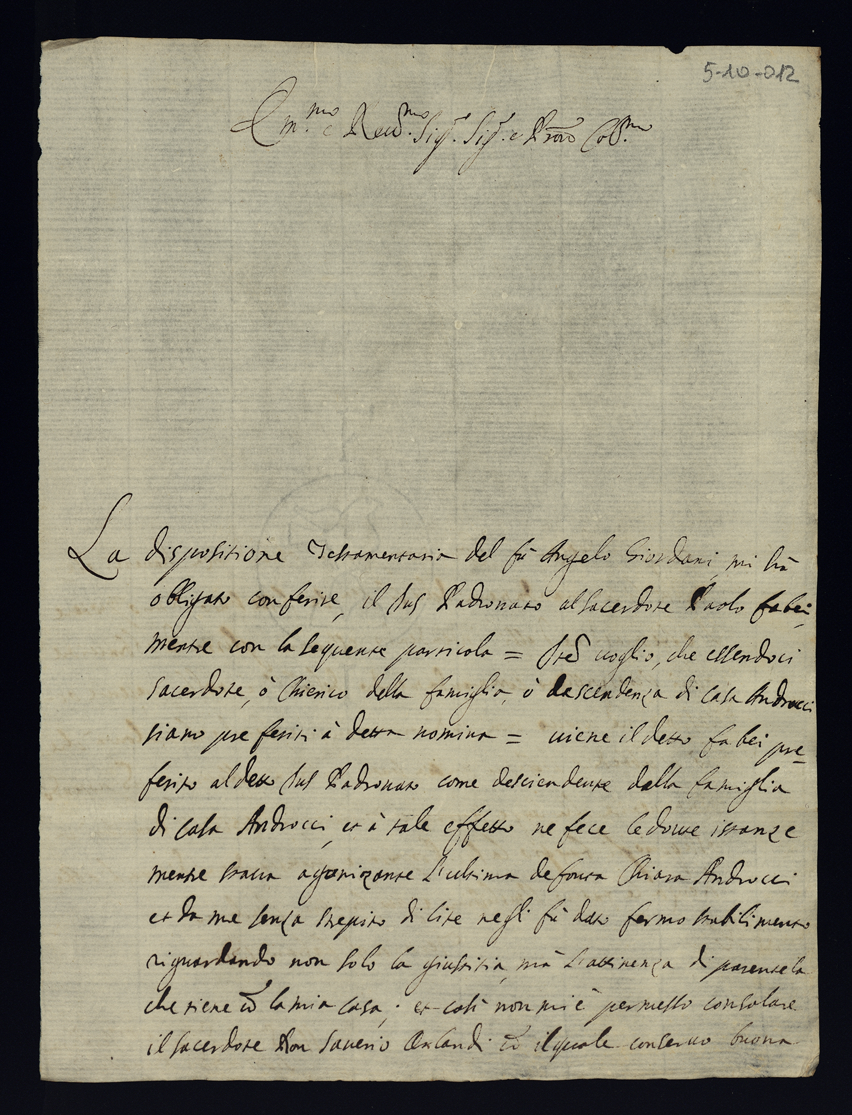 5-10-012
Em.mo e Rev.mo Sig.r Sig.r e Prōne Col.mo
La dispositione Testamentaria del fù Angelo Giordani, mi hà
obligato conferire, il Jus Padronato al Sacerdote Paolo fabei,
mentre con la seguente particola = voglio, che essendoci
Sacerdote, ò Chierico della famiglia, ò descendenza di casa Androcci
siano preferiti à detta nomina = viene il detto fabei pre-
ferito al detto Jus Padronato come desciendente della famiglia
di casa Androcci, et à tale effetto ne fece le dovute istanze
mentre stava agonizante L'ultima defonta Chiara Androcci
et da me senza strepito di lite negli fù dato fermo stabilimento
riguardando non solo la giustitia, mà L'attinenza di parentela
che tiene cō la mia casa; et così non mi è permesso consolare
il Sacerdote Don Saverio Orlandi cō il quale conservo buona